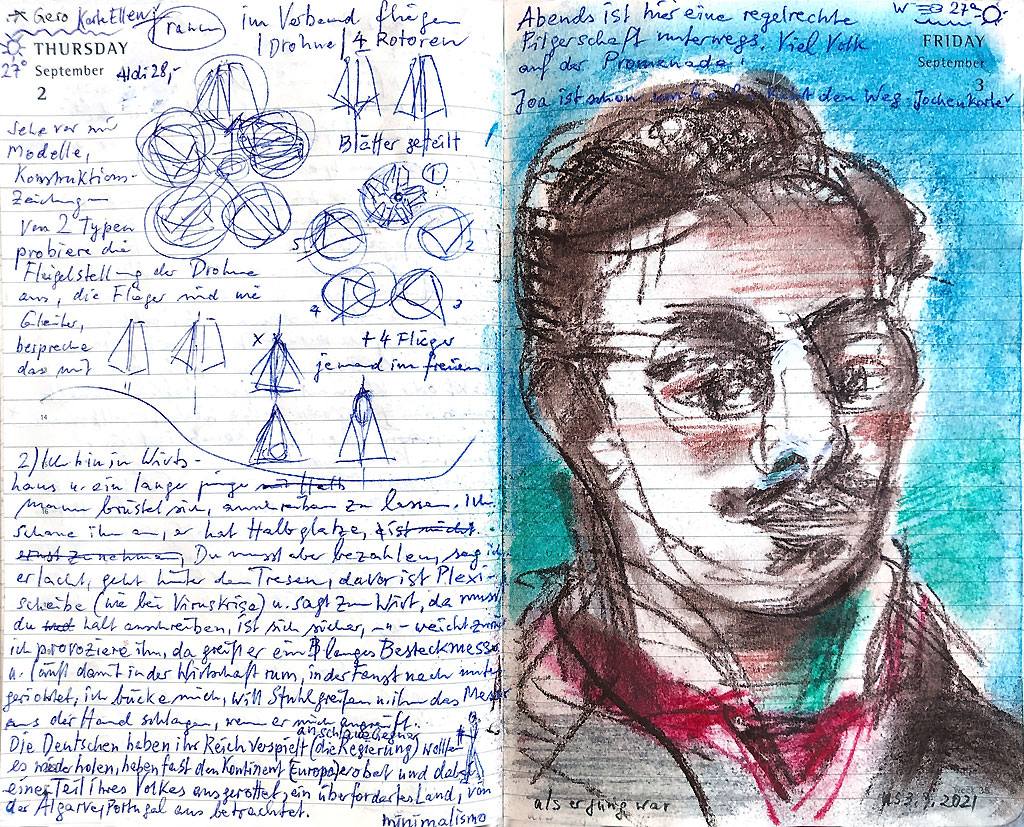 → Gero Karte Ellen
rahm
im Verband fliegen
1 Drohne / 4 Rotoren
THURSDAY
27°
September
Aldi 28,-
2
Blätter geteilt
sehe vor mir
Modelle,
Konstruktions-
Zeichnungen
Von 2 Typen
probiere die
Flügelstellung der Drohne
aus, die Flieger sind wie
Gleiter,
bespreche
das mit
1
2
3
4
5
x x
+ 4 Flieger
jemand im freien.
14
2) Ich bin im Wirts-
haus u. ein langer junger
Mann brüstet sich, anschreiben zu lassen. Ich
schaue ihn an, er hat Halbglatze, ist nicht
ernst zu nehmen, Du musst aber bezahlen, sag ich
er lacht, geht hinter den Tresen, davor ist Plexi-
scheibe (wie bei Viruskrise) u. sagt zum Wirt, da musst
du halt anschreiben, ist sich sicher, - weicht zurück
ich provoziere ihn, da greift er ein langes Besteckmesser
u. läuft damit in der Wirtschaft rum, in der Faust nach unten
gerichtet, ich bücke mich, will Stuhl greifen u. ihm das Messer
aus der Hand schlagen, wenn er mich angreift.
Die Deutschen haben ihr Reich verspielt (die Regierung) wollte
es wiederholen, haben fast den Kontinent Europa erobert und dabei
einen Teil ihres Volkes ausgerottet, ein überfordertes Land, von
der Algarve, Portugal aus betrachtet.
minimalismo
Abends ist hier eine regelrechte
Pilgerschaft unterwegs. Viel Volk
auf der Promenade!
W 27°
FRIDAY
September
3
Joa ist schon den Weg. Jochen Karte
als er jung war
week 35
3.9.2021